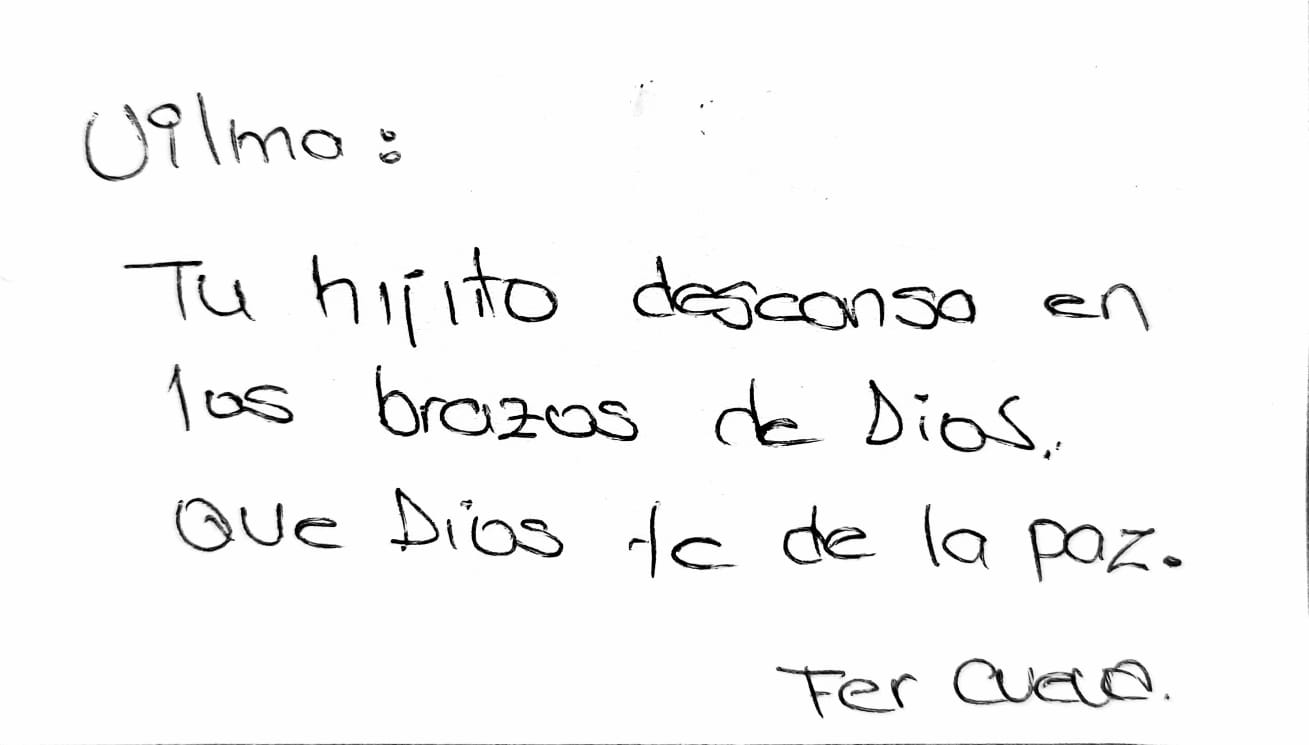 Vilma:
Tu hijito descansa en
los brazos de Dios.
Que Dios te de la paz.
Fer